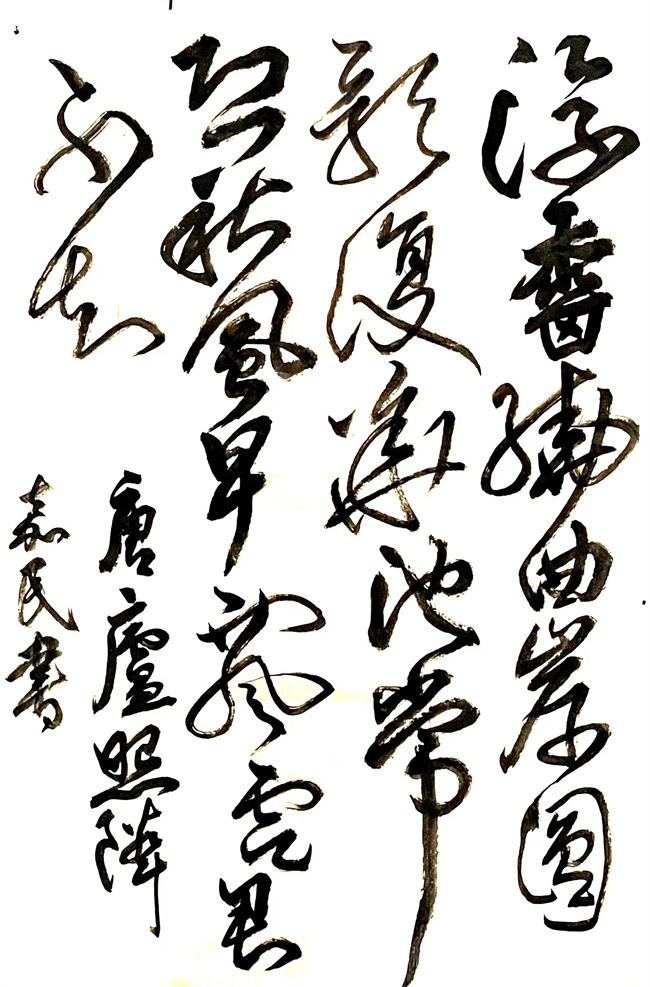 浮香繞曲岸圓
影復華池常
恐秋風早飄零君
不知
唐盧照隣
嘉民書